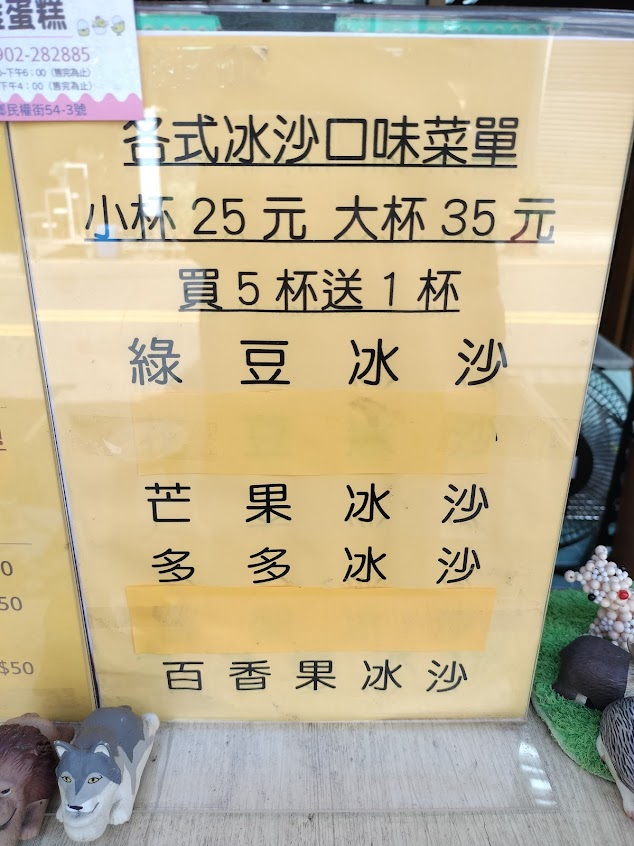 蛋糕
902-282885
下午6：00（售完為止）
下午4：00（售完為止）
民權街54-3號
各式冰沙口味菜單
小杯 25 元 大杯 35 元
買 5 杯送 1 杯
綠豆冰沙
芒果冰沙
多多冰沙
百香果冰沙
0
50
$50